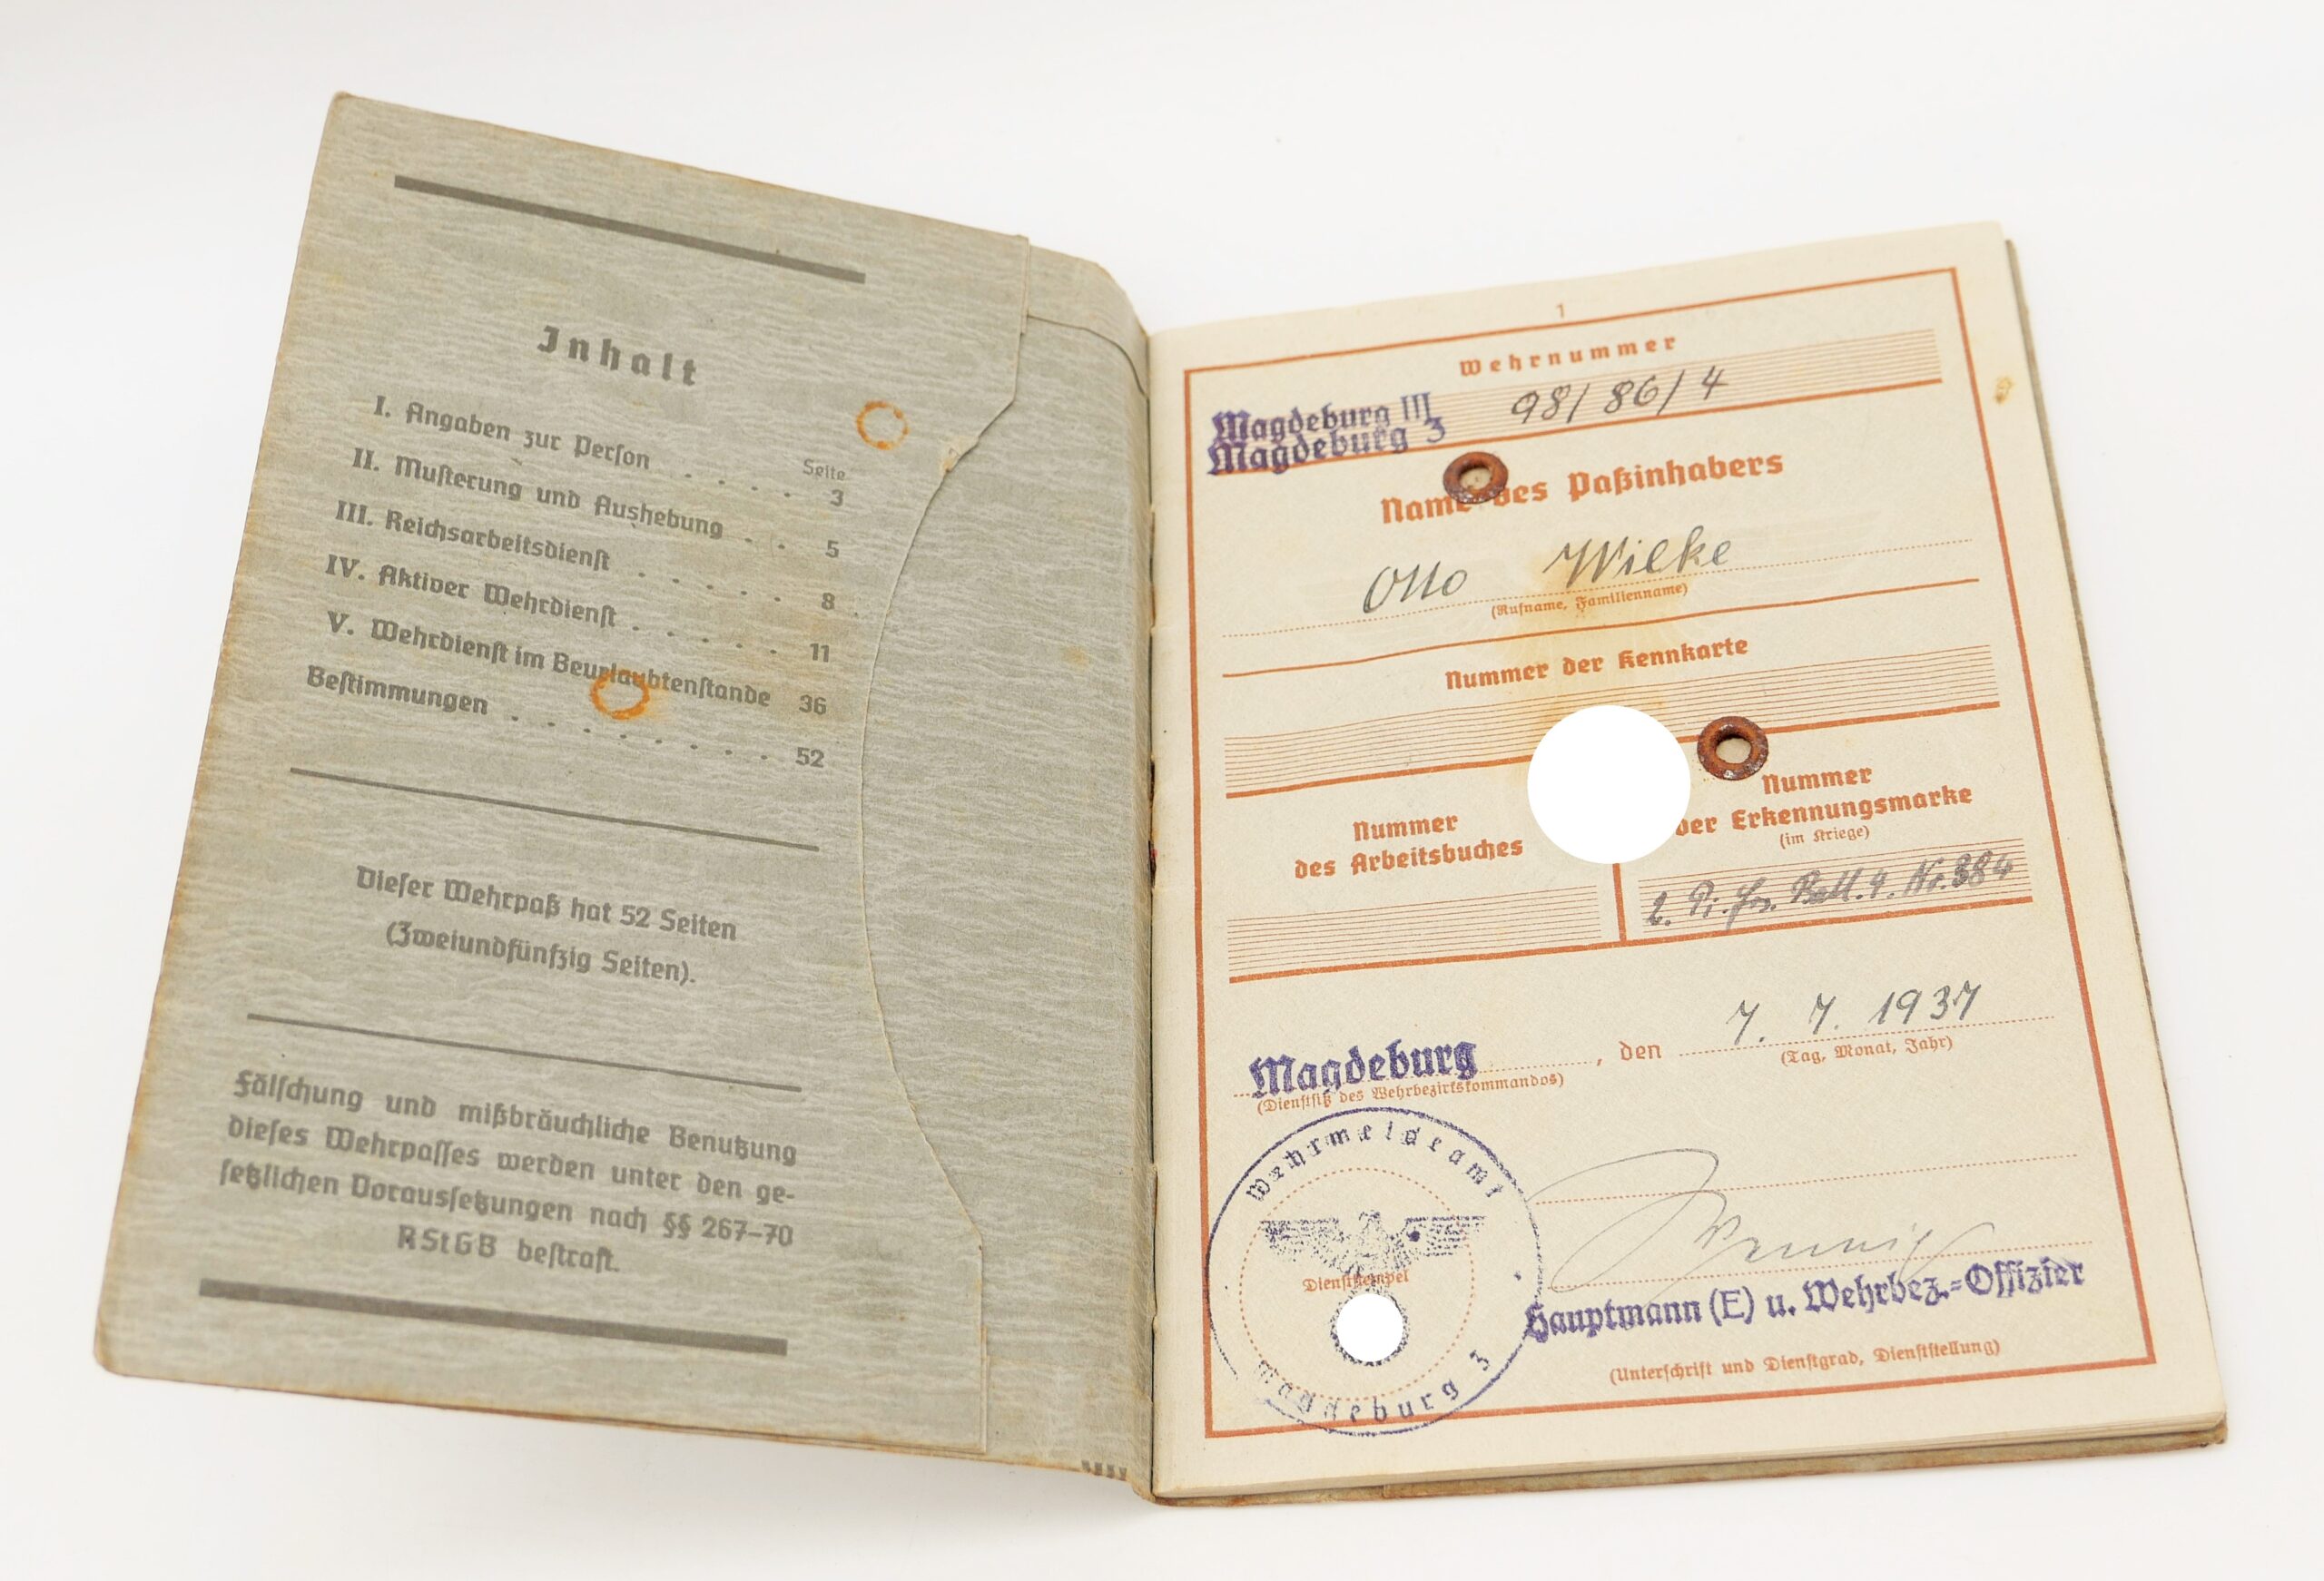 Inhalt
Seite
I. Angaben zur Person . . . . . 3
II. Musterung und Aushebung . . 5
III. Reichsarbeitsdienst . . . . . 8
IV. Aktiver Wehrdienst . . . . . 11
V. Wehrdienst im Beurlaubtenstande 36
Bestimmungen . . . . . . . . 52
Dieser Wehrpaß hat 52 Seiten
(Zweiundfünfzig Seiten).
Fälschung und mißbräuchliche Benutzung
dieses Wehrpasses werden unter den ge-
setzlichen Voraussetzungen nach §§ 267–70
RStGB bestraft.
1
Wehrnummer
Magdeburg III 98/86/4
Magdeburg 3
Name des Paßinhabers
Otto Wilke
(Rufname, Familienname)
Nummer der Kennkarte
Nummer
des Arbeitsbuches
Nummer
der Erkennungsmarke
(im Kriege)
2. Pi. Ers. Batl. 4. Nr. 384
Magdeburg, den 7. 7. 1937
(Dienstsitz des Wehrbezirkskommandos) (Tag, Monat, Jahr)
Wehrmeldeamt
Dienststempel
Magdeburg 3
Hauptmann (E) u. Wehrbez.=Offizier
(Unterschrift und Dienstgrad, Dienststellung)